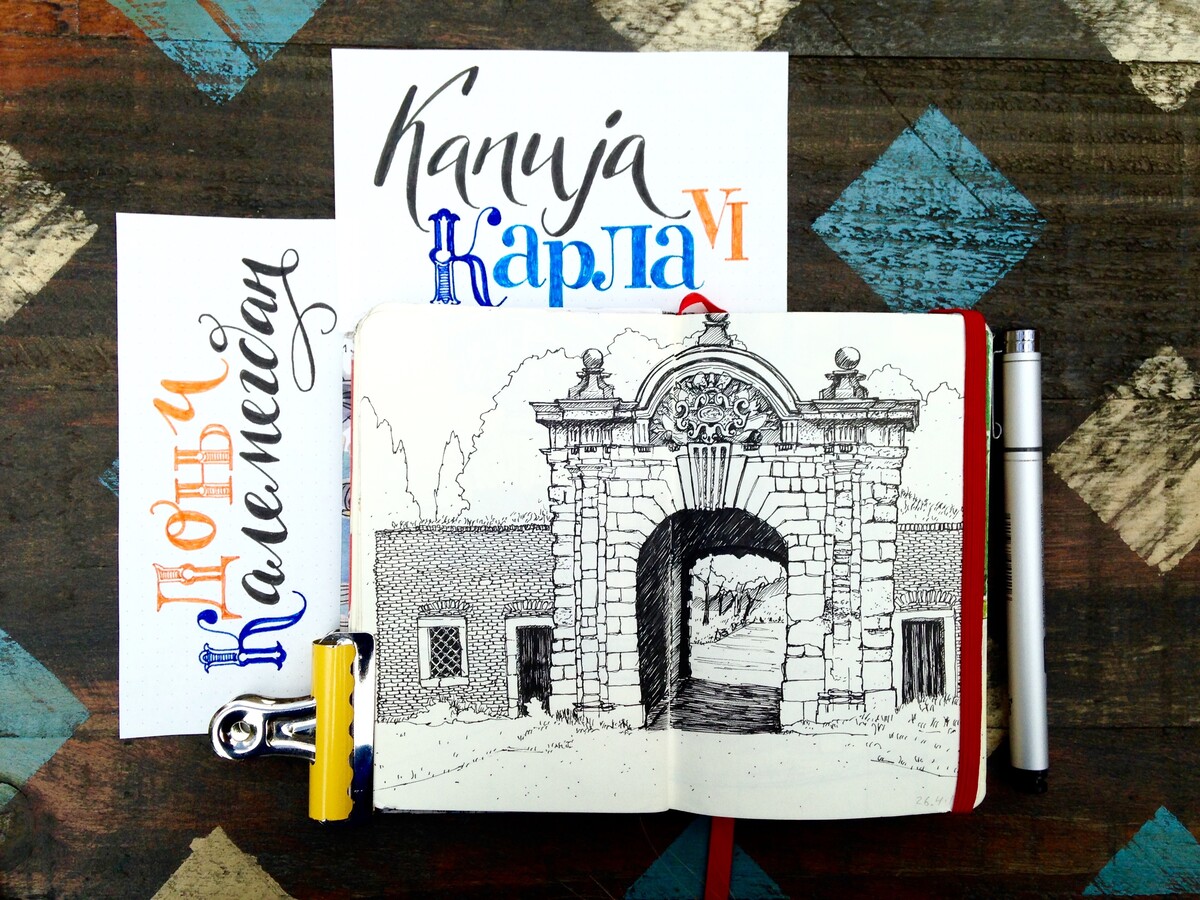 Капија
Карла VI
Доњи
Калемегдан
26.4.